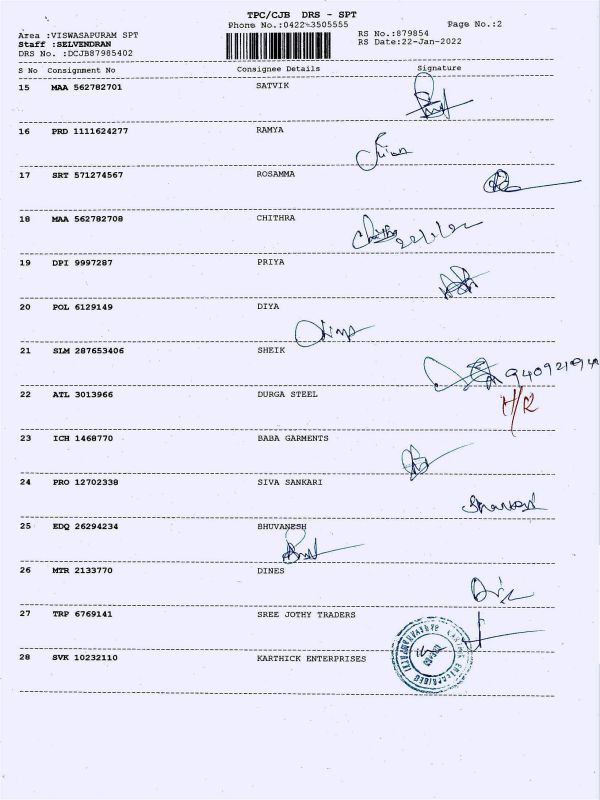 TPC/CJB DRS - SPT
Phone No.:0422-3505555 Page No.:2
Area :VISWASAPURAM SPT RS No.:879854
Staff :SELVENDRAN RS Date:22-Jan-2022
DRS No. :DCJB87985402
S No Consignment No Consignee Details Signature
15 MAA 562782701 SATVIK
16 PRD 1111624277 RAMYA
17 SRT 571274567 ROSAMMA
18 MAA 562782708 CHITHRA
19 DPI 9997287 PRIYA
20 POL 6129149 DIYA
21 SLM 287653406 SHEIK
22 ATL 3013966 DURGA STEEL H/R
23 ICH 1468770 BABA GARMENTS
24 PRO 12702338 SIVA SANKARI
25 EDQ 26294234 BHUVANESH
26 MTR 2133770 DINES
27 TRP 6769141 SREE JOTHY TRADERS
28 SVK 10232110 KARTHICK ENTERPRISES